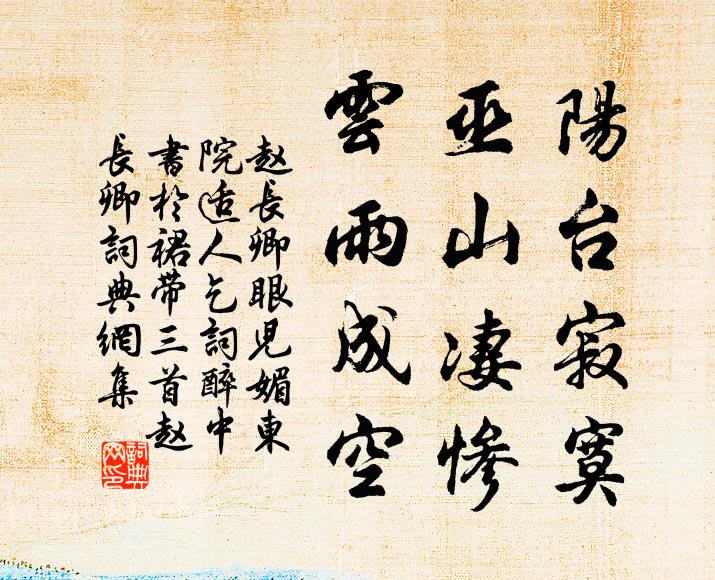 陽台寂寞
巫山凄慘
雲雨成空
赵長卿眼兒媚東
院适人乞詞醉中
書於裙带三首赵
長卿詞典網集
詞典
网印